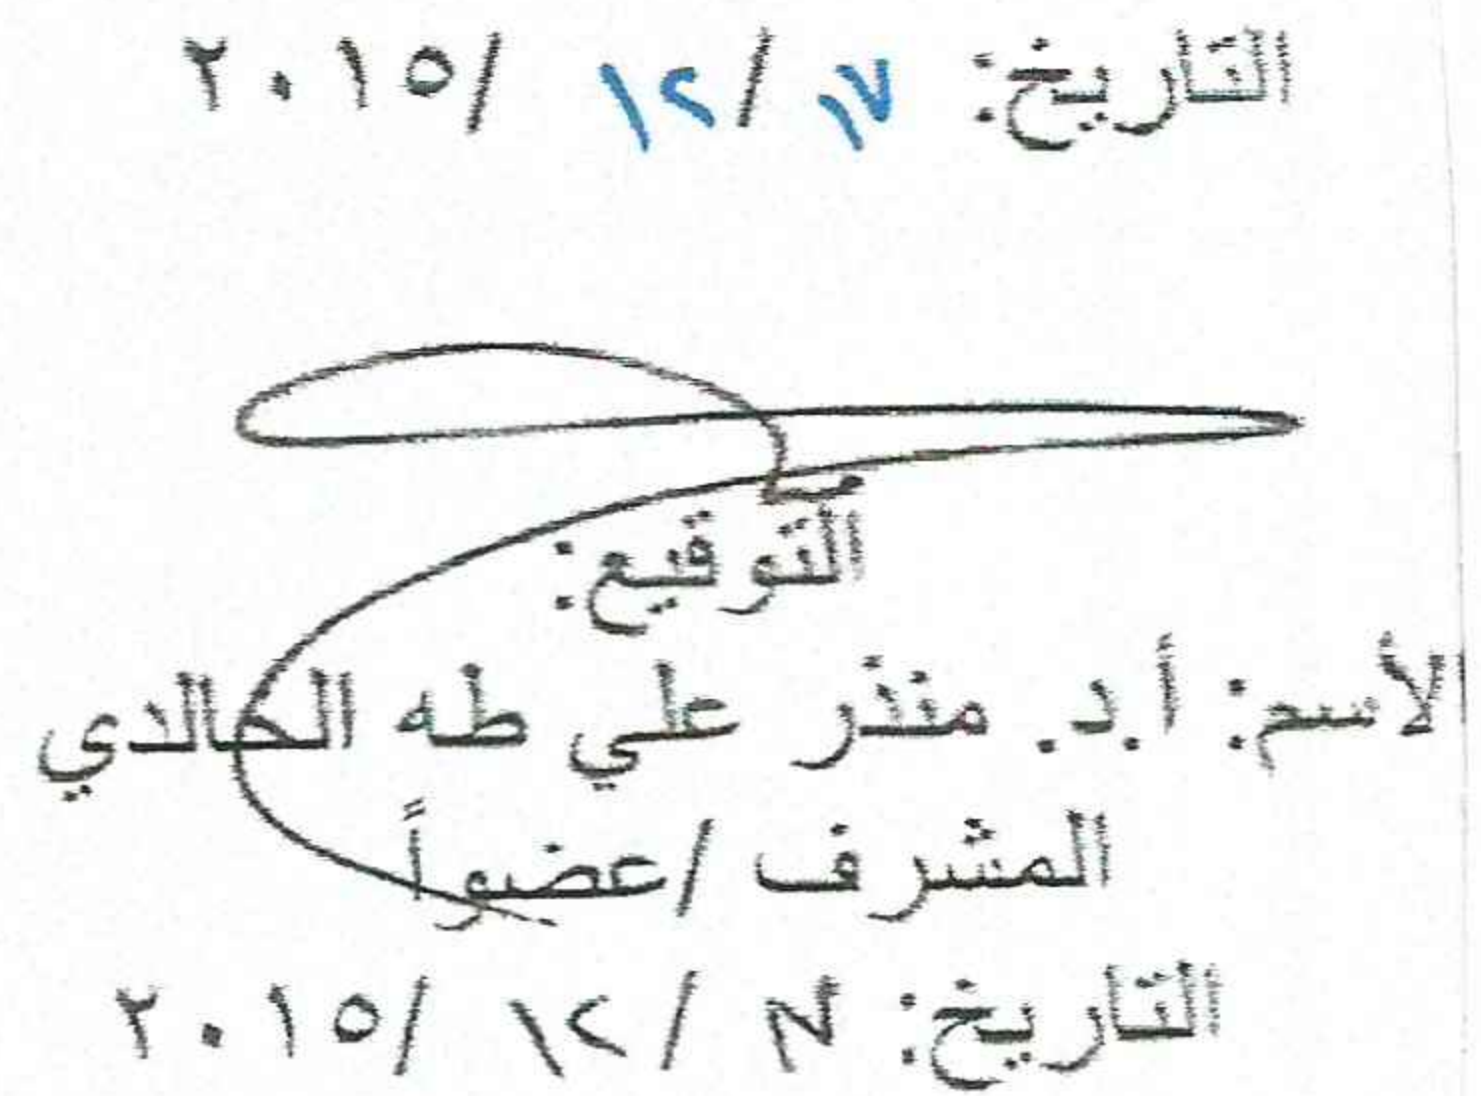 التاريخ: ١٧/ ١٢ /٢٠١٥
التوقيع:
الأسم: أ.د. منذر علي طه الخالدي
المشرف /عضواً
التاريخ: ١٧ / ١٢ /٢٠١٥